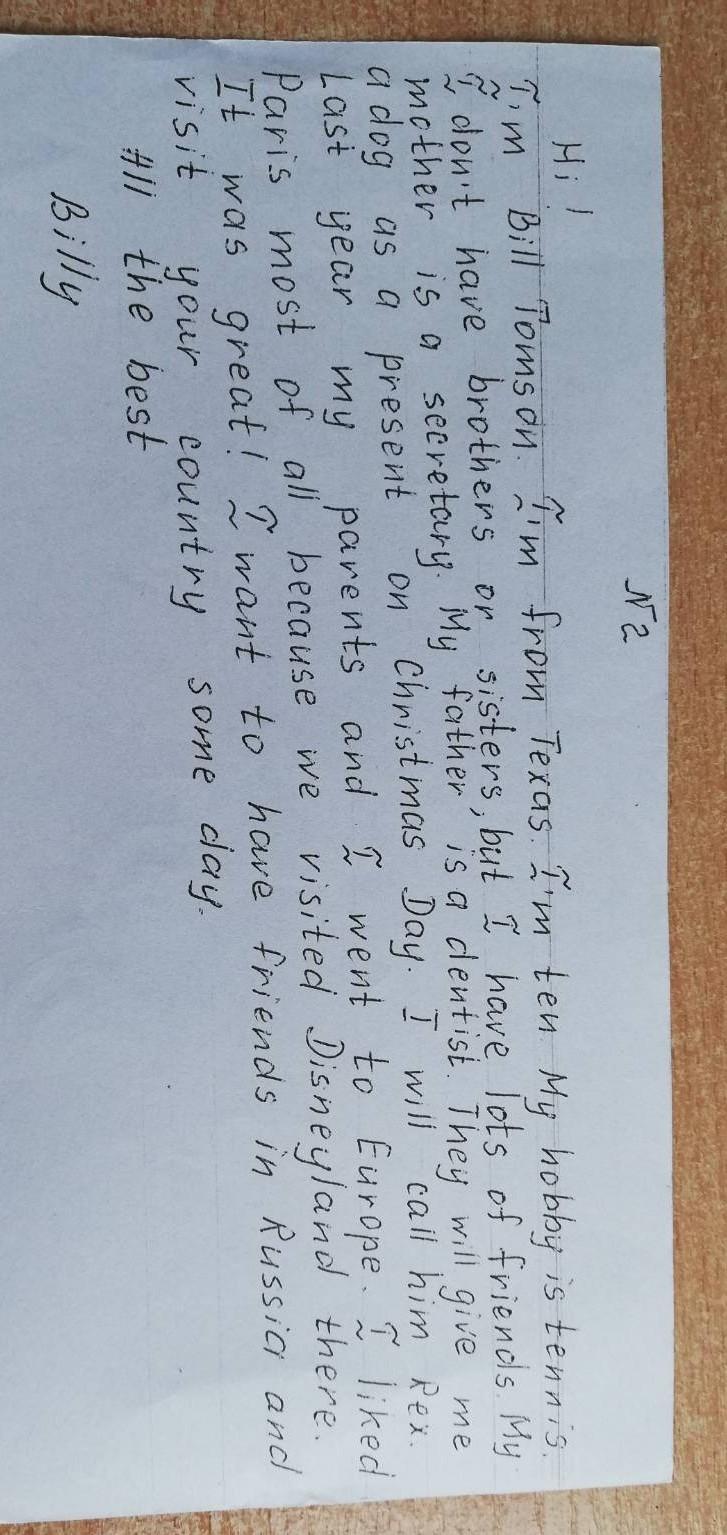 N2
Hi!
I'm Bill Tomson. I'm from Texas. I'm ten. My hobby is tennis.
I don't have brothers or sisters, but I have lots of friends. My
mother is a secretary. My father is a dentist. They will give me
a dog as a present on Christmas Day. I will call him Rex.
Last year my parents and I went to Europe. I liked
Paris most of all because we visited Disneyland there.
It was great! I want to have friends in Russia and
visit your country some day.
All the best
Billy